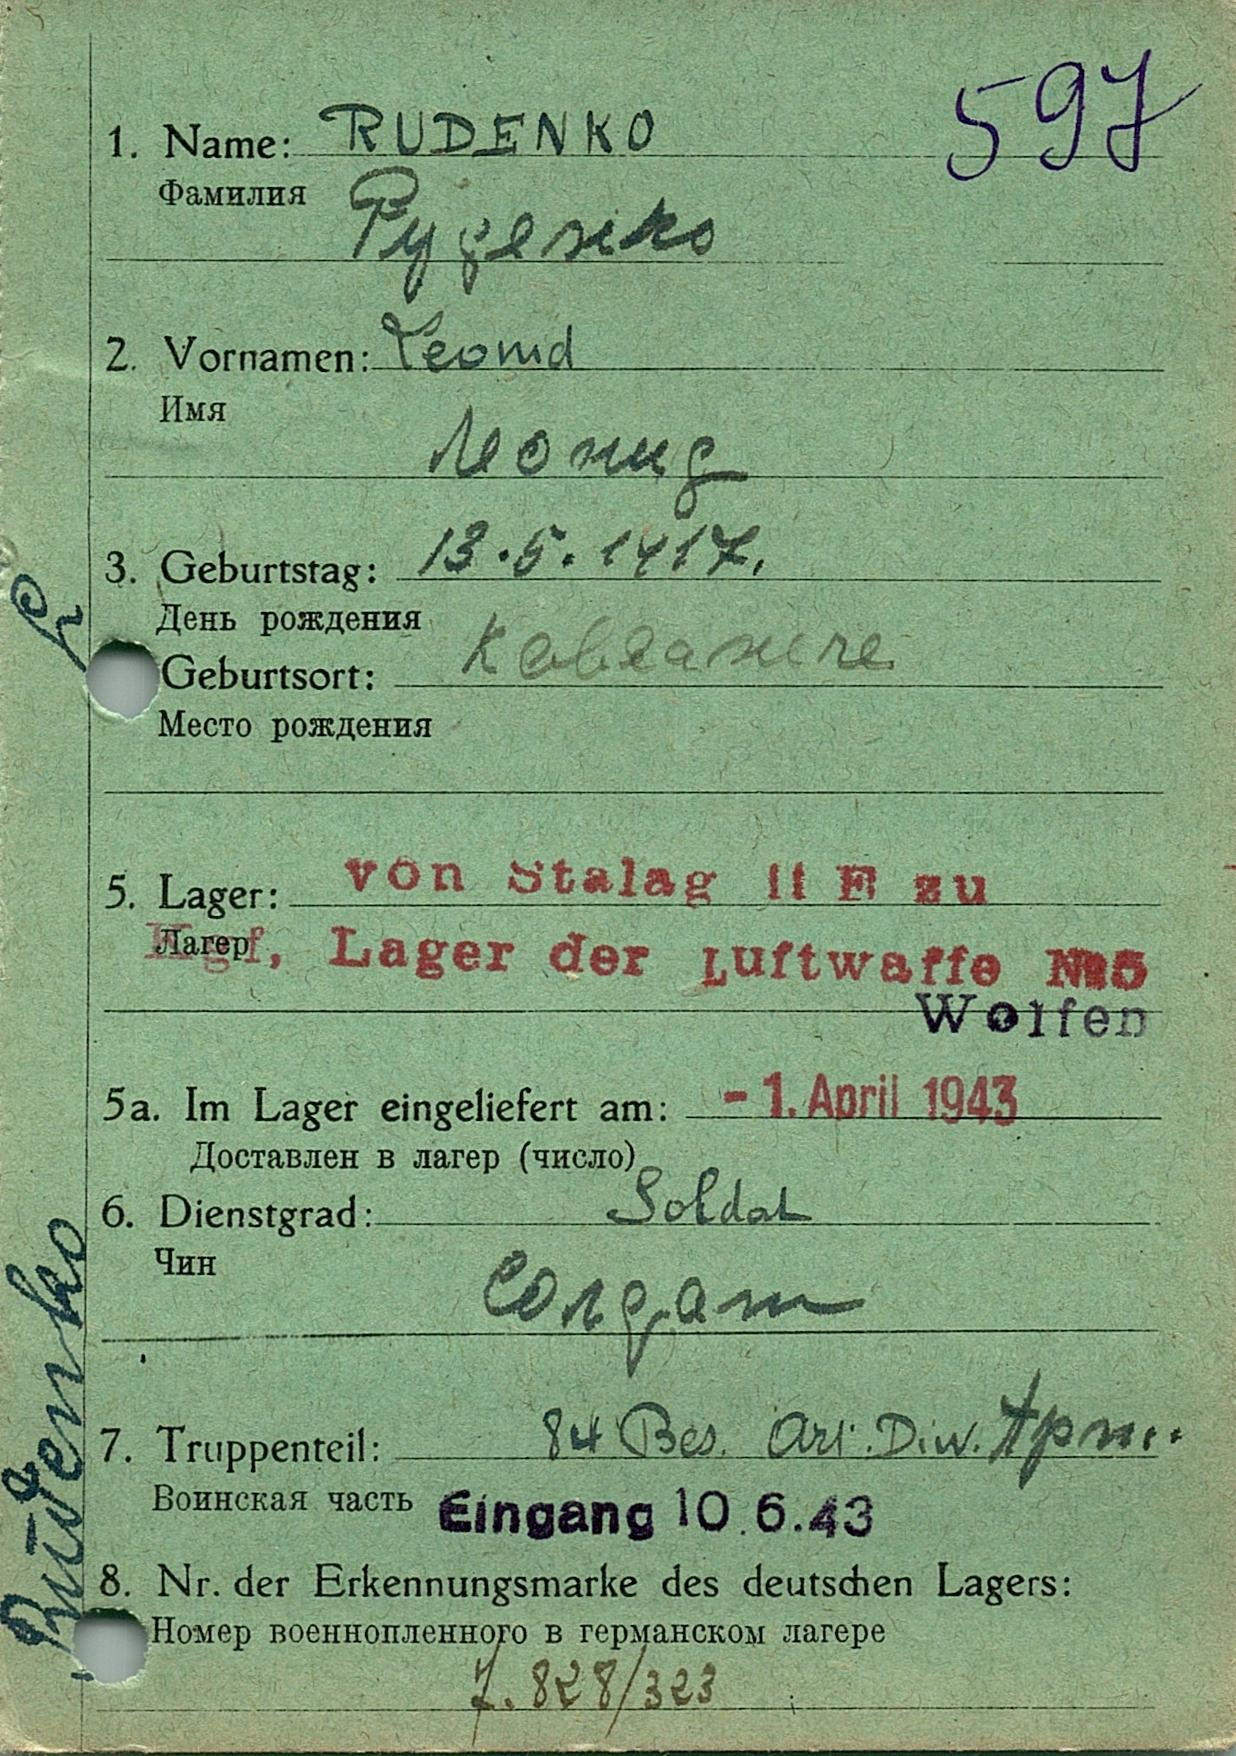 597
1. Name: RUDENKO
Фамилия
Руденко
2. Vornamen: Leonid
Имя
Леонид
3. Geburtstag: 13.5.1917.
День рождения
Geburtsort:
Место рождения
5. Lager: von Stalag II E zu
Лагер
Kgf, Lager der Luftwaffe №5
Wolfen
5a. Im Lager eingeliefert am: - 1. April 1943
Доставлен в лагер (число)
6. Dienstgrad: Soldat
Чин
Солдат
7. Truppenteil: 84 Bes. Art. Div.
Воинская часть
Eingang 10.6.43
8. Nr. der Erkennungsmarke des deutschen Lagers:
Номер военнопленного в германском лагере
828/323
Rudenko